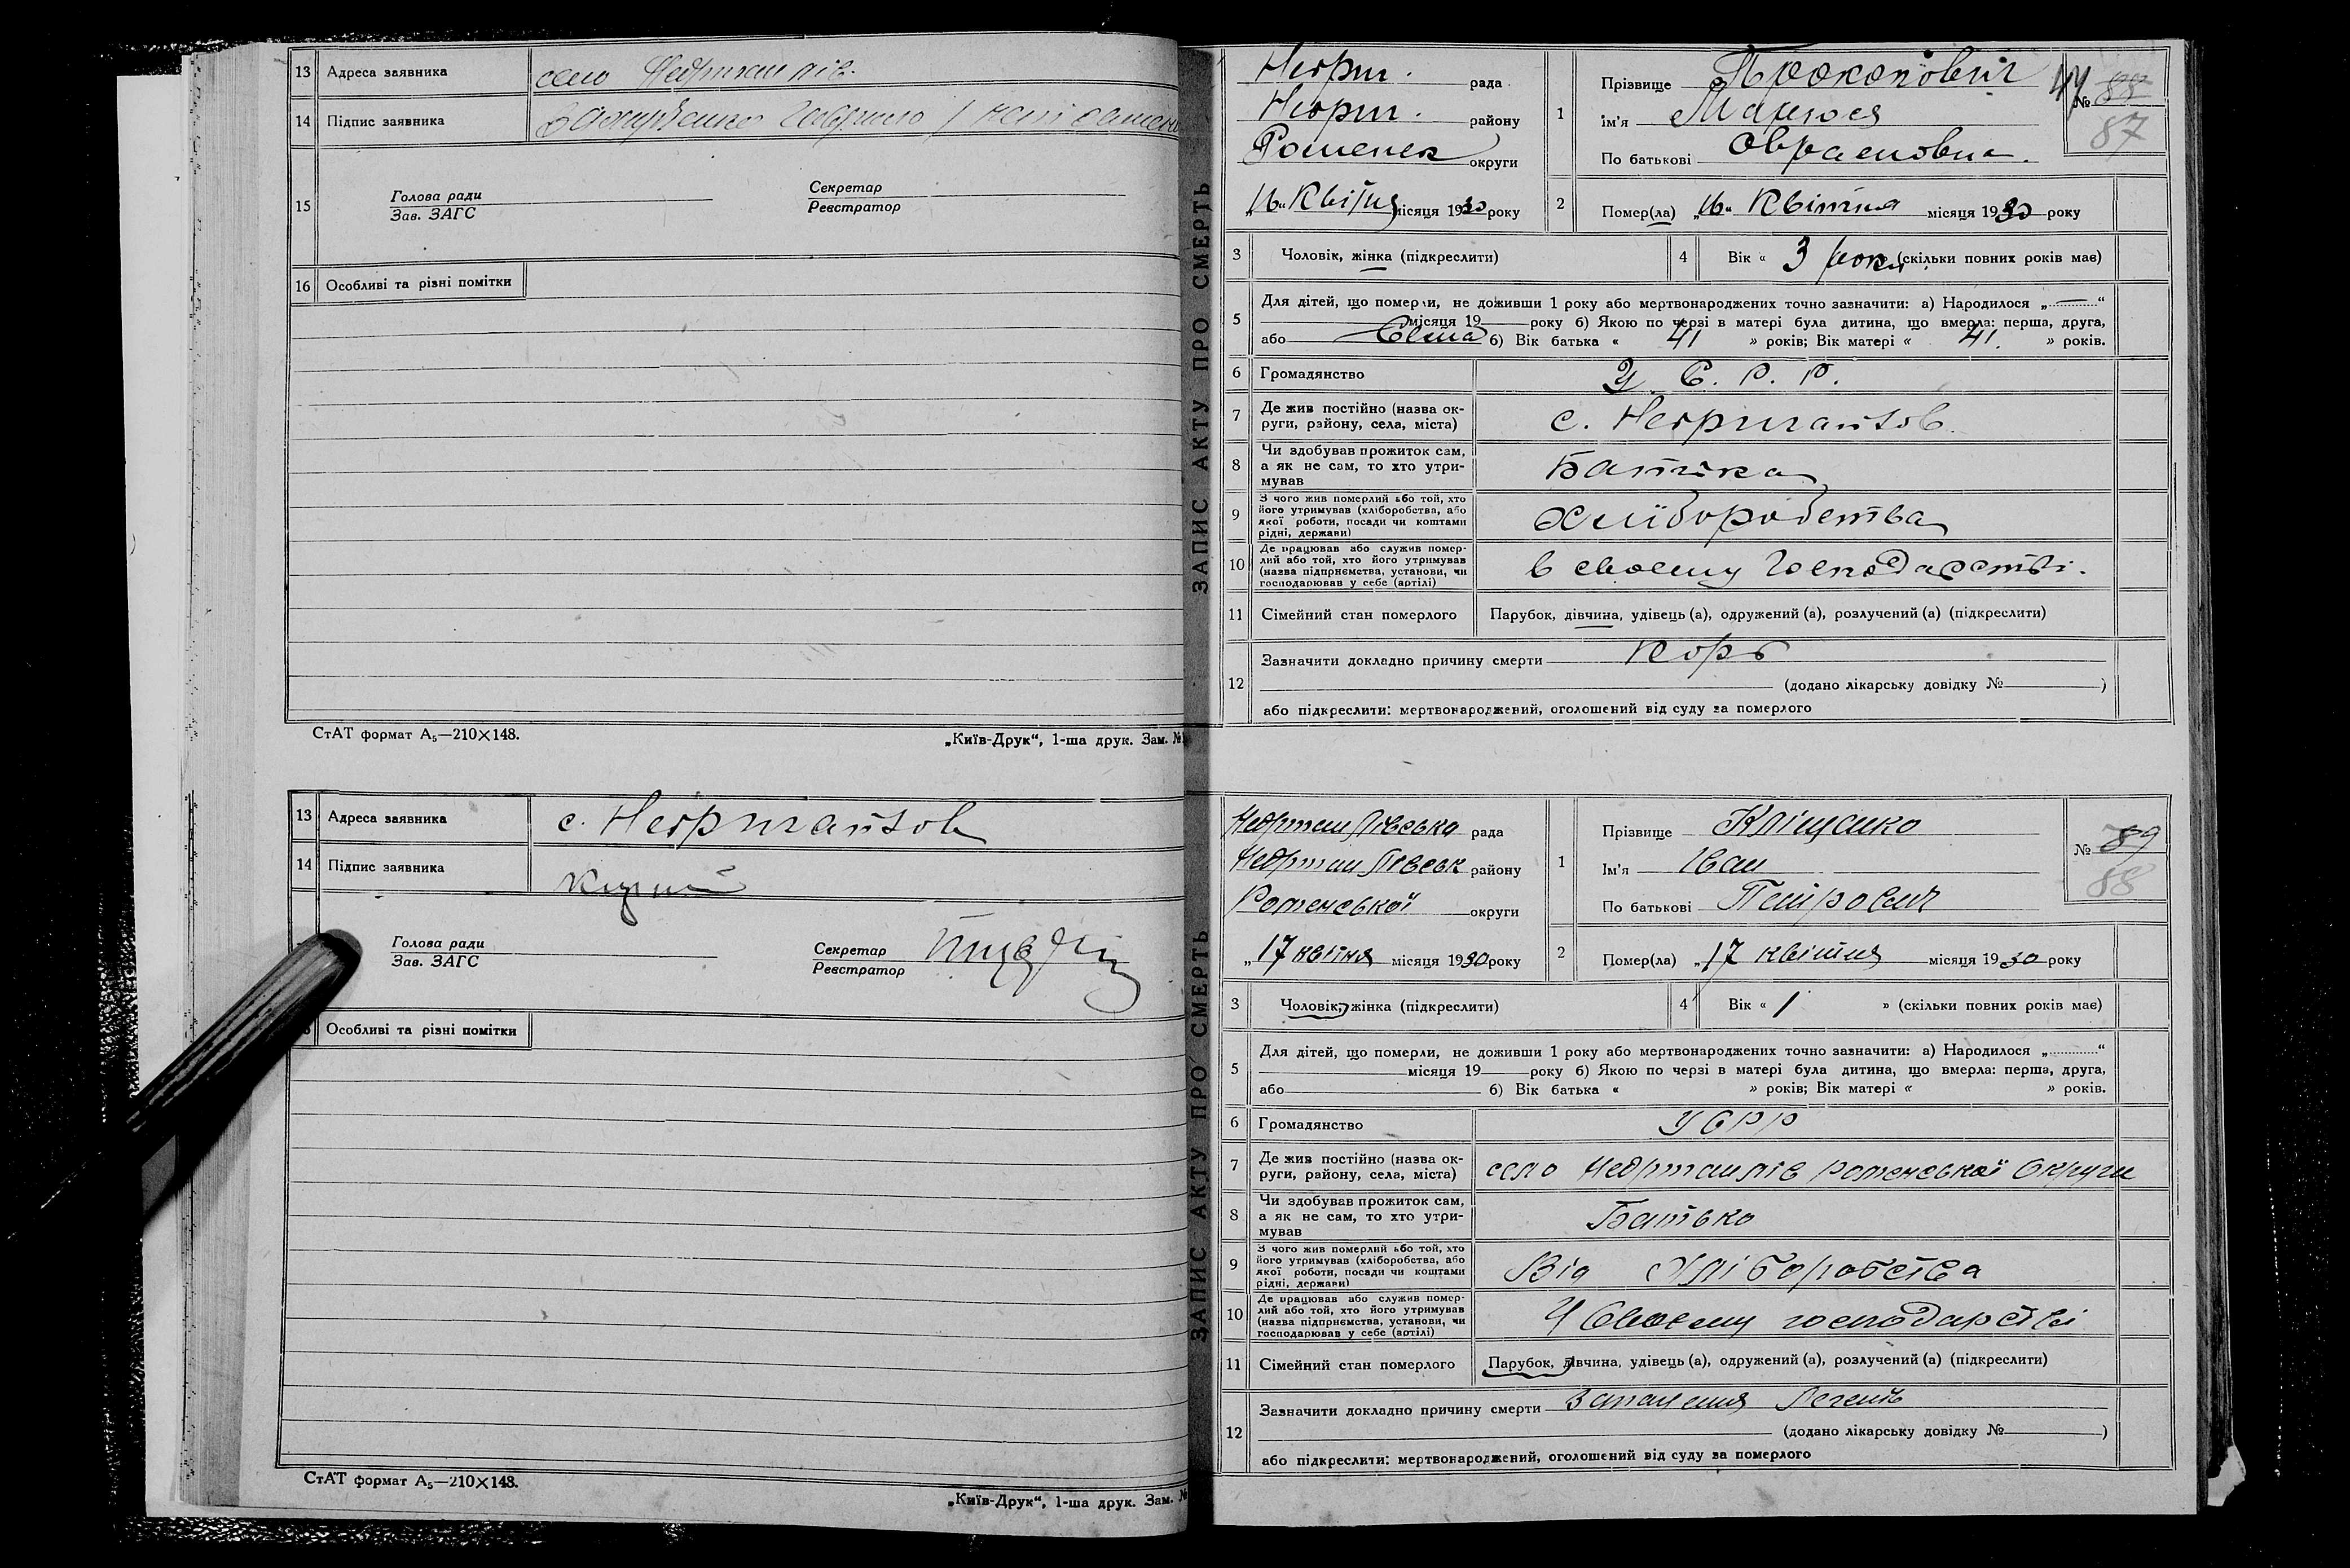 13 Адреса заявника село Недригайлів.
14 Підпис заявника
15 Голова ради
Зав. ЗАГС
Секретар
Реєстратор
16 Особливі та різні помітки
СтАТ формат А₅—210×148.
„Київ-Друк“, 1-ша друк. Зам. №
13 Адреса заявника с. Недригайлов
14 Підпис заявника
Голова ради
Зав. ЗАГС
Секретар
Реєстратор
Особливі та різні помітки
СтАТ формат А₅—210×148.
„Київ-Друк“, 1-ша друк. Зам. №
ЗАПИС АКТУ ПРО СМЕРТЬ
Недриг. рада
Недриг. району
Роменск округи
„16“ Квітня місяця 1930 року
1 Прізвище Прокопович
Ім'я
По батькові Овраамовна.
№ 88
87
2 Помер(ла) „16“ Квітня місяця 1930 року
3 Чоловік, жінка (підкреслити)
4 Вік « 3 роки (скільки повних років має)
5 Для дітей, що померли, не доживши 1 року або мертвонароджених точно зазначити: а) Народилося „—“
місяця 19 року б) Якою по черзі в матері була дитина, що вмерла: перша, друга,
або 6) Вік батька « 41 » років; Вік матері « 41. » років.
6 Громадянство У. С. Р. Р.
7 Де жив постійно (назва округи, району, села, міста) с. Недригайлов.
8 Чи здобував прожиток сам, а як не сам, то хто утримував Батька
9 З чого жив померлий або той, хто його утримував (хліборобства, або якої роботи, посади чи коштами рідні, держави) Хліборобства
10 Де працював або служив померлий або той, хто його утримував (назва підприємства, установи, чи господарював у себе (артілі) в своему господарстві.
11 Сімейний стан померлого Парубок, дівчина, удівець (а), одружений (а), розлучений (а) (підкреслити)
12 Зазначити докладно причину смерти Корь
(додано лікарську довідку № )
або підкреслити: мертвонароджений, оголошений від суду за померлого
ЗАПИС АКТУ ПРО СМЕРТЬ
Недригайлівська рада
Недригайлівськ району
Роменської округи
„17 квітня місяця 1930 року
1 Прізвище Кліщенко
Ім'я Іван
По батькові Петрович
№ 89
88
2 Помер(ла) „17 квітня місяця 1930 року
3 Чоловік, жінка (підкреслити)
4 Вік « 1 » (скільки повних років має)
5 Для дітей, що померли, не доживши 1 року або мертвонароджених точно зазначити: а) Народилося „ “
місяця 19 року б) Якою по черзі в матері була дитина, що вмерла: перша, друга,
або 6) Вік батька « » років; Вік матері « » років.
6 Громадянство УСРР
7 Де жив постійно (назва округи, району, села, міста) село Недригайлів роменської округи
8 Чи здобував прожиток сам, а як не сам, то хто утримував Батько
9 З чого жив померлий або той, хто його утримував (хліборобства, або якої роботи, посади чи коштами рідні, держави) Від Хліборобства
10 Де працював або служив померлий або той, хто його утримував (назва підприємства, установи, чи господарював у себе (артілі) У Своему господарстві
11 Сімейний стан померлого Парубок, дівчина, удівець (а), одружений (а), розлучений (а) (підкреслити)
12 Зазначити докладно причину смерти Запалення Легень
(додано лікарську довідку № )
або підкреслити: мертвонароджений, оголошений від суду за померлого